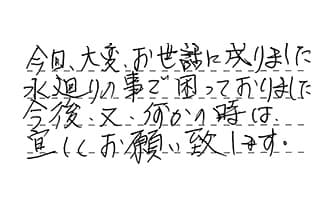 今日、大変、お世話に成りました
水廻りの事で困っておりました
今後、又、何かの時は、
宜しくお願い致します。